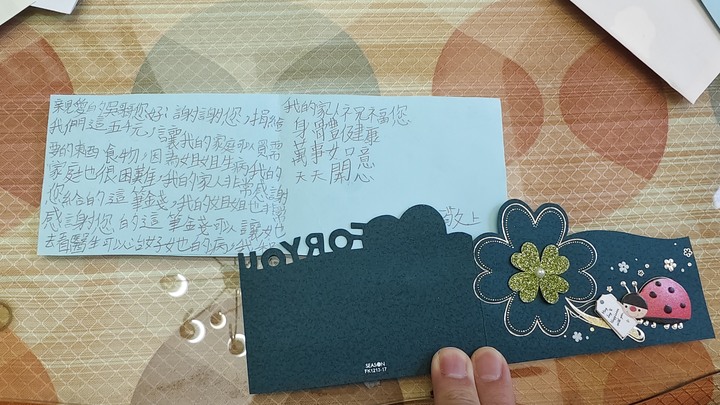 親愛的吳師您好:謝謝您,捐給
我們這五千元,讓我的家庭可以買需
要的東西食物,因為姐姐生病,我的
家庭也很困難,我的家人非常感謝
您給的這筆金錢,我的姐姐也非常
感謝您的這筆金錢可以讓她
去看醫生可以治好她的病,我
我的家人祝福您
身體健康
萬事如意
天天開心
敬上
FOR YOU
SEASON
PK1213-17